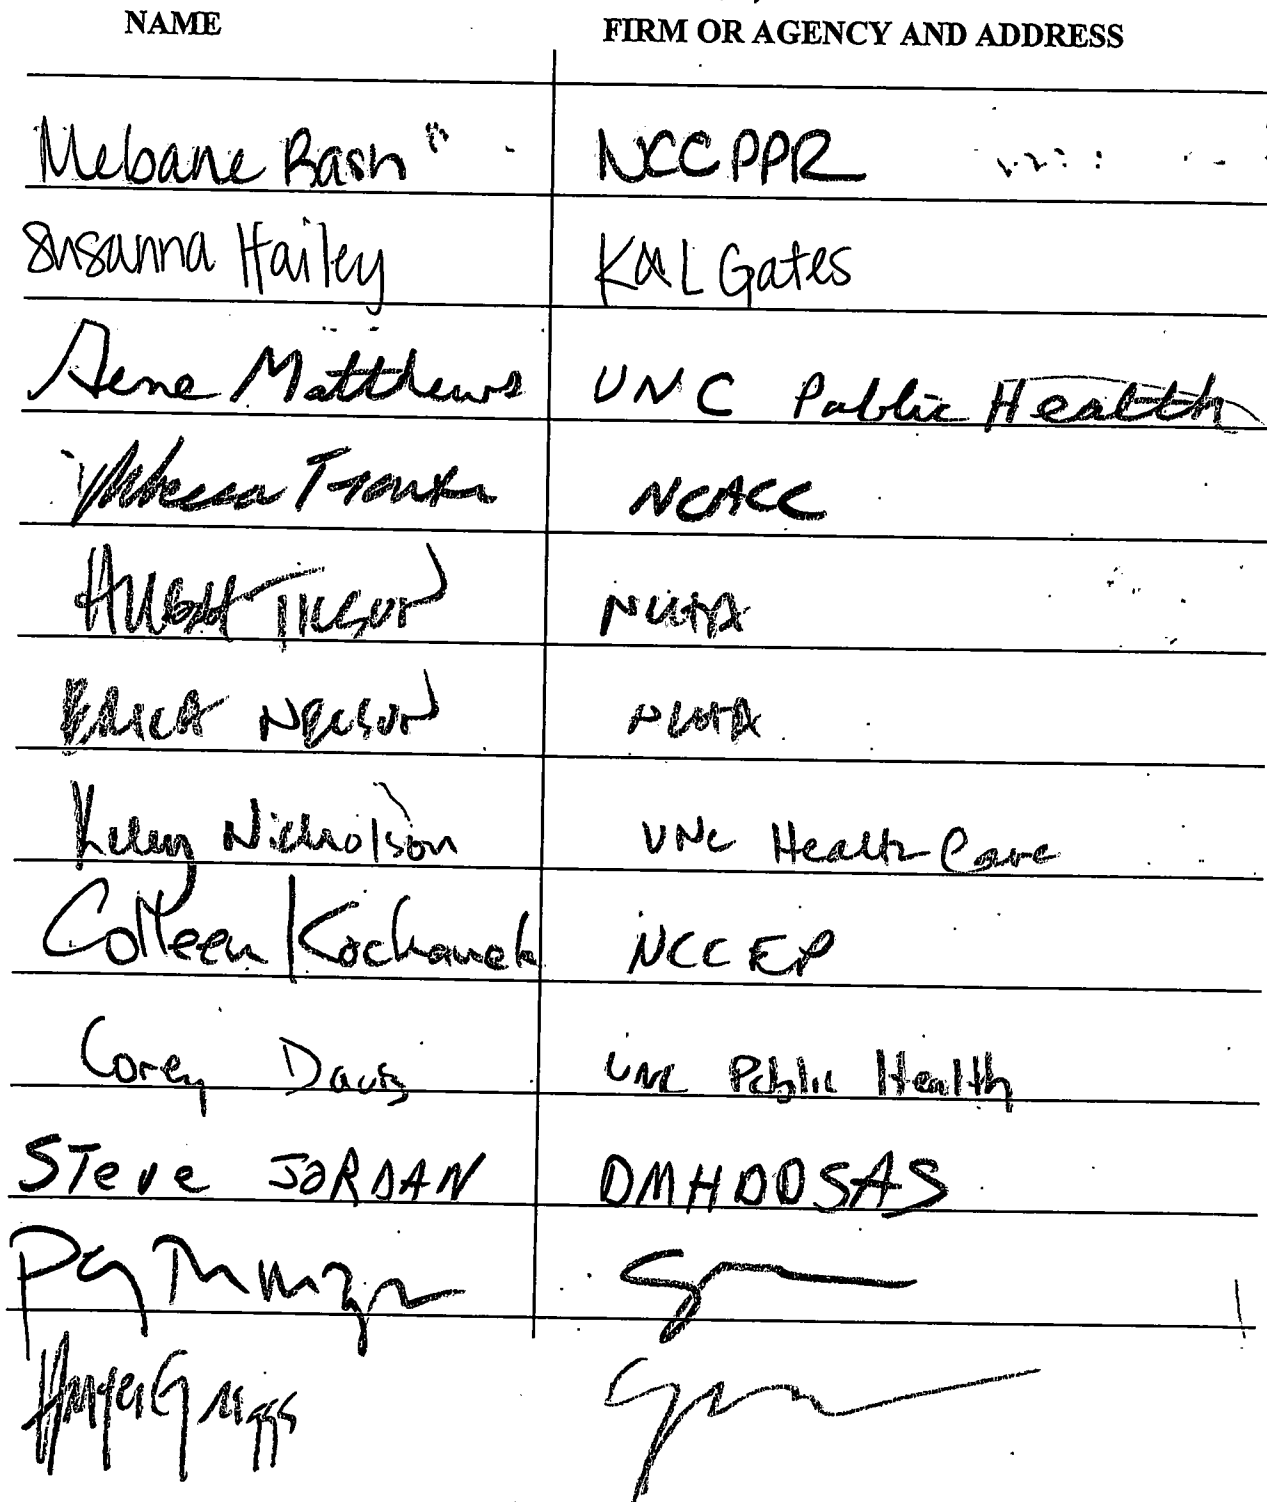 NAME FIRM OR AGENCY AND ADDRESS
Mebane Rash NCCPPR
Susanna Hailey K&L Gates
Gene Matthews UNC Public Health
NCACC
Hugh Tilson NCHA
Erica Nelson NCHA
Kelly Nicholson UNC Health Care
Colleen Kochanek NCCEP
Corey Davis UNC Public Health
STeve JORDAN DMHDDSAS